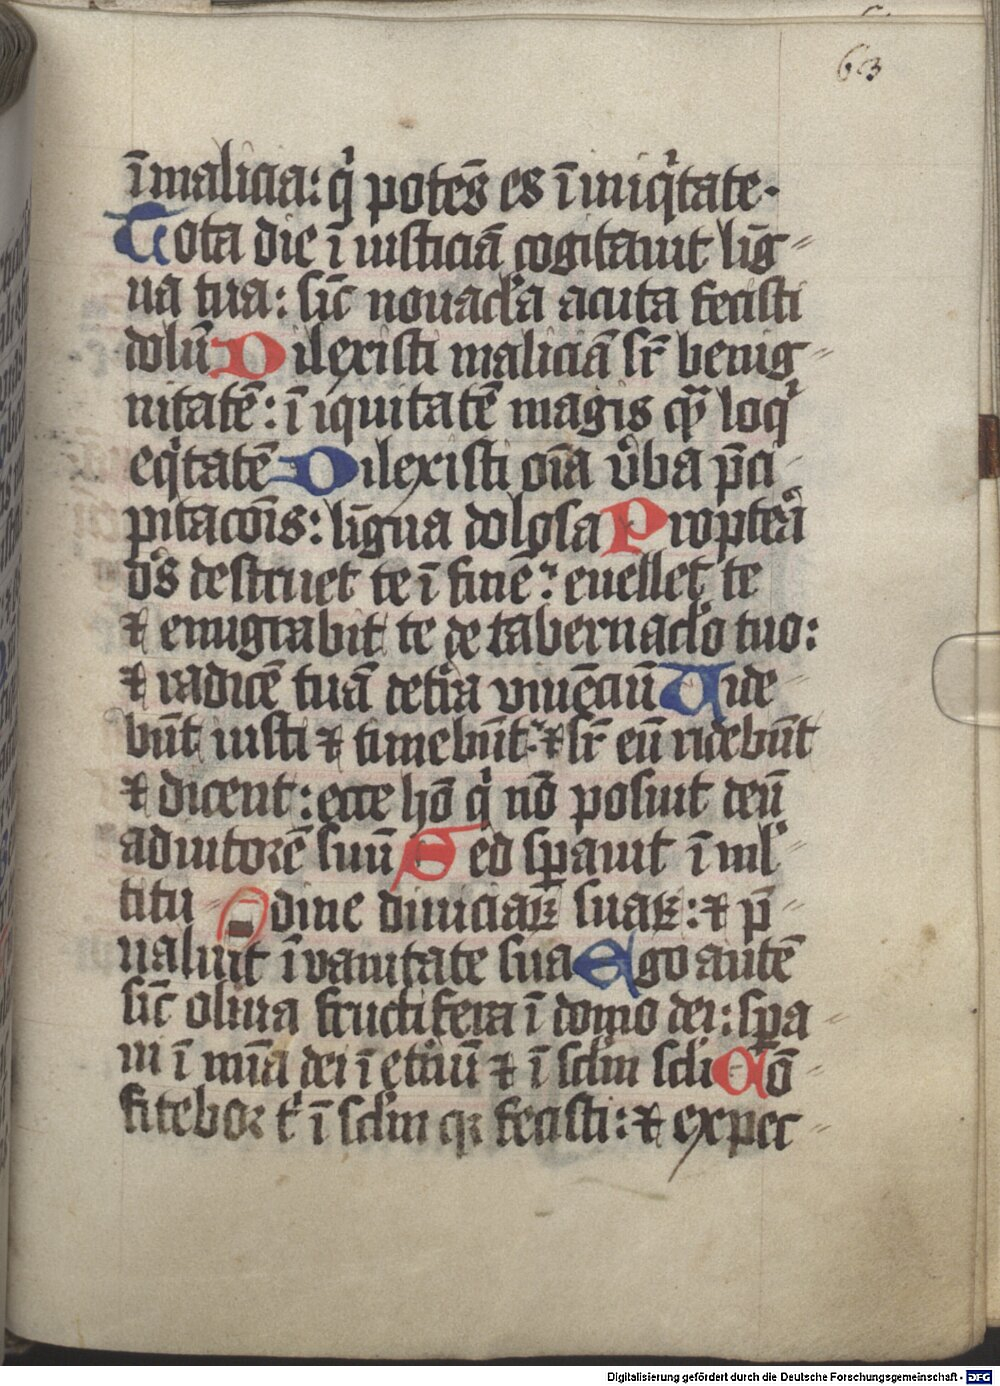 63
ī malicia: qͥ potēs es ī iniqͥtate.
Tota die ī iusticiā cogitauit liḡ
ua tua: sic̄ nouacl'a acuta fecisti
dolū Dilexisti maliciā sr̄ benig
nitatē: ī iquitatē magis qͣꝫ loqͥ
eqͥtatē Dilexisti oīa v̾ba p̄ci
pitacōis: līgua dolosa Proptea᷒
ds̄ destruet te ī finē: euellet te
⁊ emigrabit te de tabernacl'o tuo:
⁊ radicē tuā de tͥra viuēciū Uide
būt iusti ⁊ timebūt: ⁊ sr̄ eū ridebūt
⁊ dicent: ecce hō qͥ nō posuit deū
adiutorē suū Sed sꝑauit ī ml'
titu dine diuiciaꝝ suaꝝ: ⁊ p̄
ualuit ī vanitate sua Ego autē
sic̄ oliua fructifera ī domo dei: sꝑa
ui ī mīa dei ī et̾nū ⁊ ī scl'm scl'i Cō
fitebor tͥ ī scl'm qꝛ fecisti: ⁊ expec
Digitalisierung gefördert durch die Deutsche Forschungsgemeinschaft - DFG